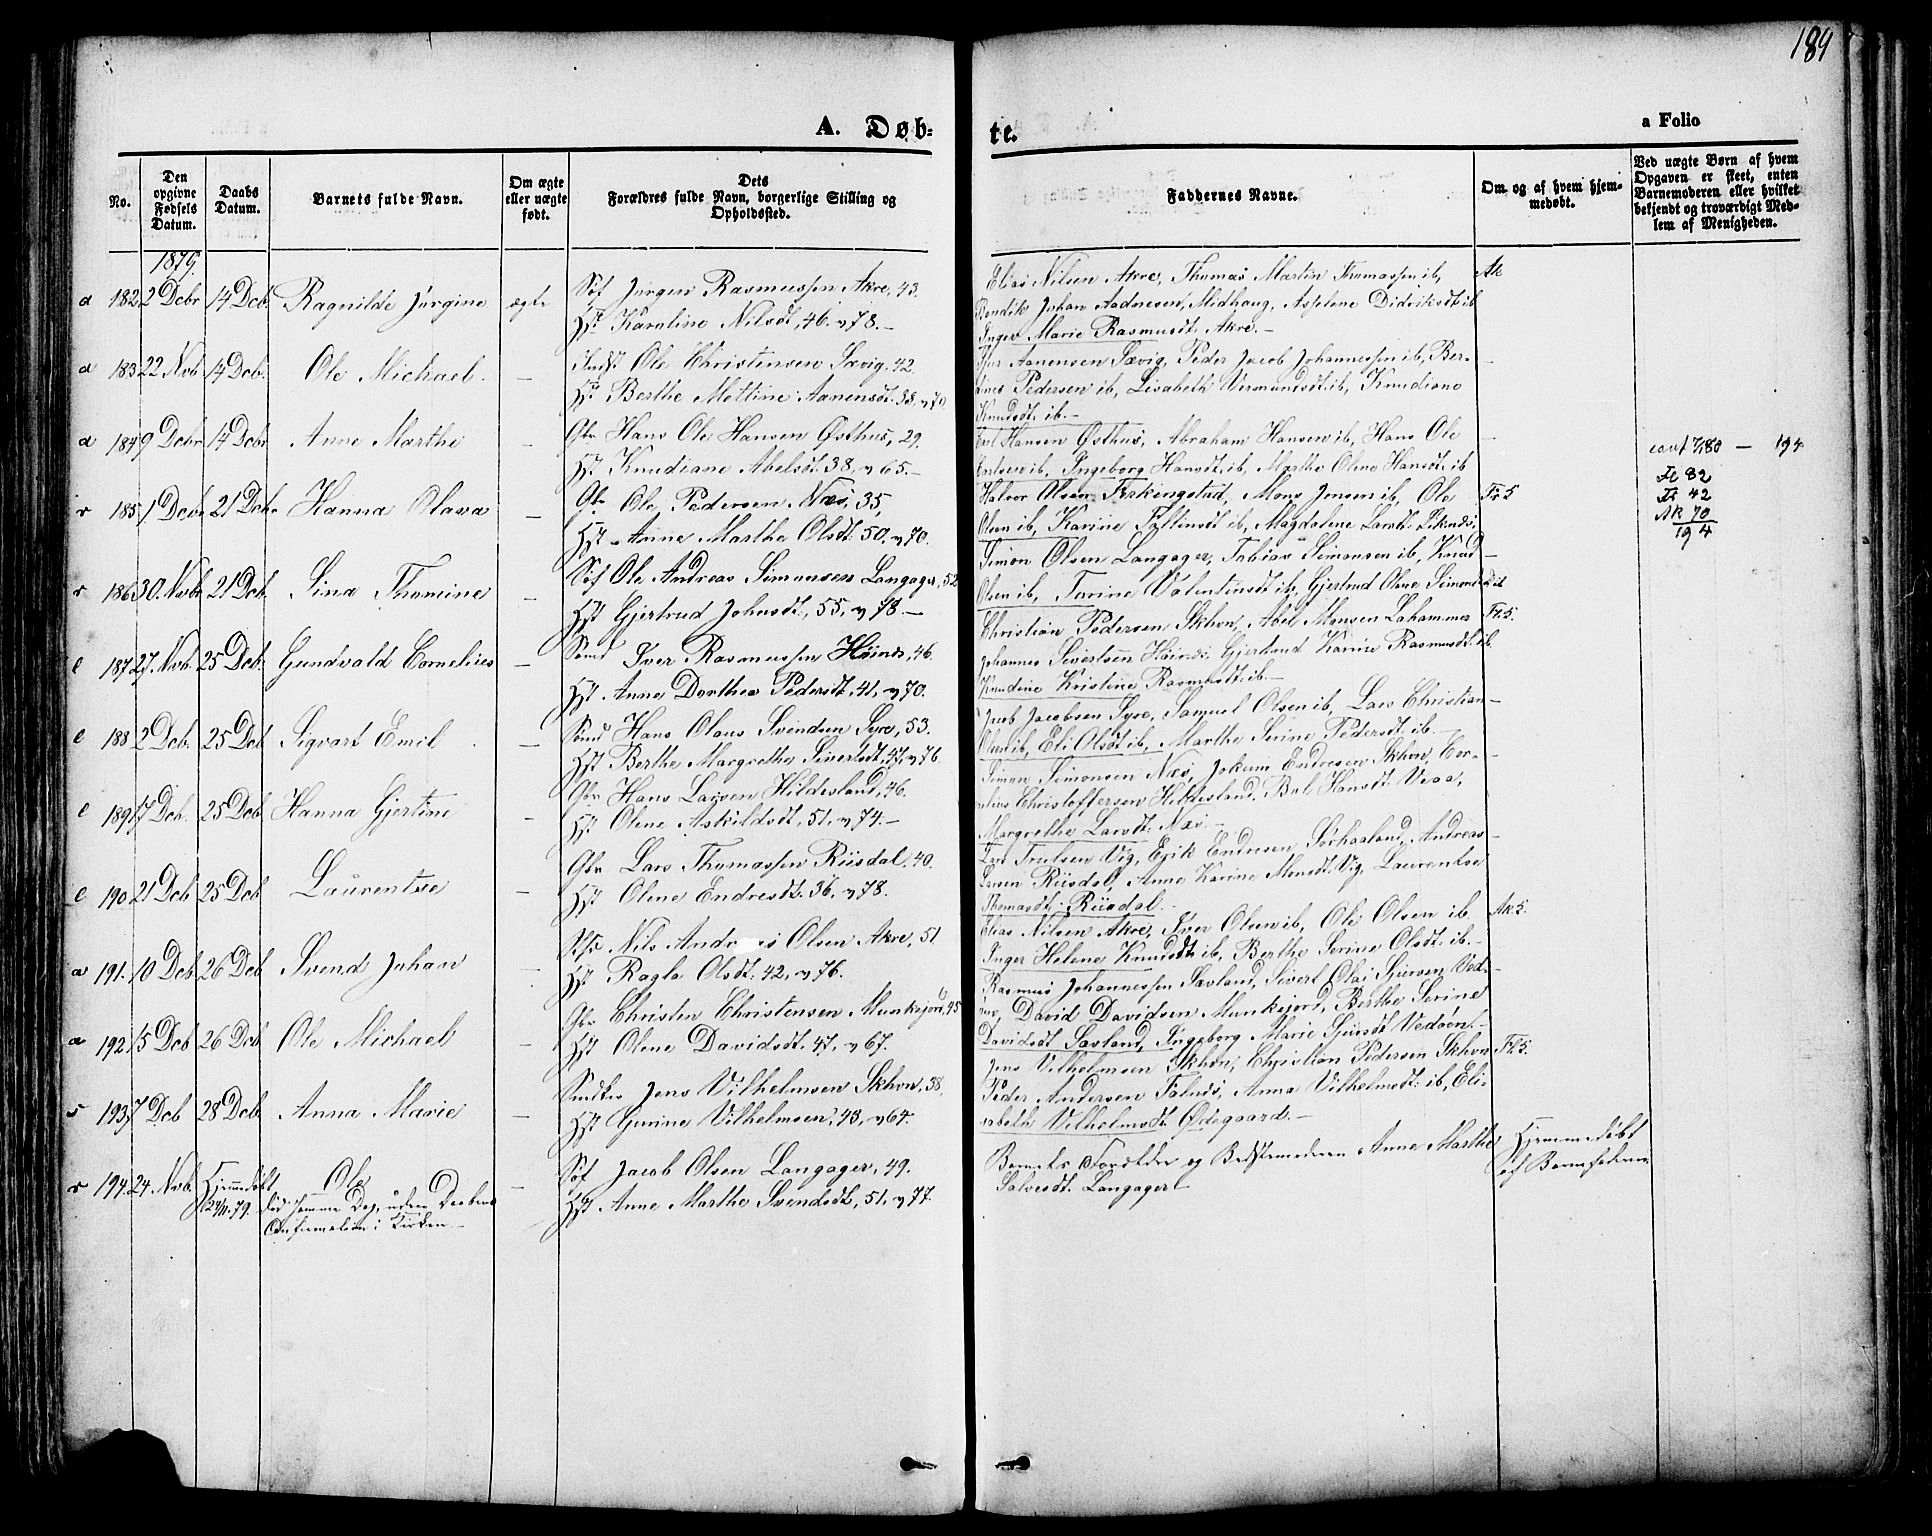 189
A. Døb-
te.
a Folio
No.
Den opgivne Fødsels Datum.
Daabs Datum.
Barnets fulde Navn.
Om ægte eller uægte født.
Dets Forældres fulde Navn, borgerlige Stilling og Opholdssted.
Faddernes Navne.
Om og af hvem hjemmedøbt.
Ved uægte Børn af hvem Opgaven er skeet, enten Barnemoderen eller hvilket bekjendt og troværdigt Medlem af Menigheden.
1879.
a 182 2 Dcbr 14 Dcb. Ragnilde Jørgine ægte
Jørgen Rasmussen Akre, 43.
Hst Karoline Nilsdt, 46. 78.
Elias Nilsen Akre, Thomas Martin Thomassen ib,
Bendik Johan Aadnesen, Midhaug, Asselene Didriksdt ib
Inger Marie Rasmusdt. Akre.
a 183 22 Nvb 14 Dcb. Ole Michael. —
Ole Christensen Sævig, 42.
Hst Berthe Mettine Aanensdt. 38, 70.
Aanensen Sævig, Peder Jacob Johannessen ib, Ber-
Pedersen ib, Lisabeth Vermundsdt. ib, Knudiane
Knudsdt. ib.
a 184 9 Dcbr 14 Dcbr Anne Marthe —
Gbr Hans Ole Hansen Østhus, 29.
Hst Knudiane Abelsdt. 38, 65.
Hansen Østhus, Abraham Hansen ib, Hans Ole
ib, Ingeborg Hansdt. ib, Marthe Oline Hansdt. ib
r 185 1 Dcbr 21 Dcb. Hanna Olava —
Gbr Ole Pedersen Næs, 35,
Hst Anne Marthe Olsdt. 50. 70.
Halvor Olsen Ferkingstad, Mons Jensen ib, Ole
Olsen ib, Karine ib, Magdalene Larsdt.
r 186 30. Nvbr 21 Dcb. Sina Thomine —
Ole Andreas Simonsen Langager, 52
Hst Gjertrud Johnsdt., 55, 78.
Simon Olsen Langager, Tobias Simonsen ib, Knud
Olsen ib, Torine Valentinsdt. ib, Gjertrud Oline
l 187 27. Nvb. 25 Dcb. Gundvald Cornelius —
Iver Rasmussen 46.
Hst. Anne Dorthea Pedersdt. 41, 70.
Christian Pedersen Skhvn, Abel Monsen Lahammer
Johannes Sivertsen Gjertrud Karine Rasmusdt. ib.
Knudine Kristine Rasmusdt. ib.
l 188 2 Dcb. 25 Dcb Sigvart Emil —
Hans Olaus Svendsen Syre, 53.
Hst Berthe Margrethe Sivertsdt, 47, 76.
Jacob Jacobsen Syre, Samuel Olsen ib, Lars Christian
Olsen ib, Eli Olsdt ib, Marthe Serine Pedersdt. ib
l 189 17 Dcb. 25 Dcb Hanna Gjertine —
Gbr Hans Larsen Hildesland, 46.
Hst Olene Askildsdt, 51, 74.
Simon Simonsen Næs, Jokum Endresen Skhvn, Cor-
nelius Christoffersen Hildesland, Hansdt. Veaa,
Margrethe Larsdt. Næs.
l 190 21 Dcb 25 Dcb Laurentse —
Gbr Lars Thomassen Riisdal. 40.
Hst Olene Endresdt. 36, 78.
Lars Trulsen Vig, Erik Endresen Sørhaaland, Andreas
Larsen Riisdal, Anne Karine Monsdt. Vig, Laurentse
Thomasdt. Riisdal.
a 191. 10 Dcb. 26 Dcb Svend Johan —
Nils Andreas Olsen Akre, 51
Hst Ragla Olsdt. 42, 76.
Elias Nilsen Akre, Iver Olsen ib, Ole Olsen ib.
Inger Helene Knudsdt ib, Berthe Serine Olsdt. ib.
a 192 15 Dcb 26 Dcb Ole Michael —
Gbr Christen Christensen Munkejord, 45
Hst Olene Davidsdt. 47, 67.
Rasmus Johannessen Savland, Sivert Olai Sjursen Ved-
øen, David Davidsen Munkejord, Berthe Serine
Davidsdt Savland, Ingeborg Marie Sjursdt Vedøen.
s 193 7 Dcb 28 Dcb. Anna Marie —
Jens Vilhelmsen Skhvn, 38.
Hst Gurine Vilhelmsen, 43, 64.
Jens Vilhelmsen Skhvn, Christian Pedersen Skhvn
Peder Andersen Falnes, Anna Vilhelmsdt. ib, Eli-
sabeth Vilhelmsdt. Ødegaard.
r 194. 24. Nvb. Hjemmedøbt 24/11. 79. Ole —
død samme Dag, uden Daabens
Confirmation i Kirken.
Jacob Olsen Langager, 49.
Hst Anne Marthe Svendsdt, 51, 77.
Barnets Forældre og Bedstemoderen Anne Marthe
Salvesdt. Langager
Hjemmedøbt
af Barnefaderen
194
82
42
Ak 70
194